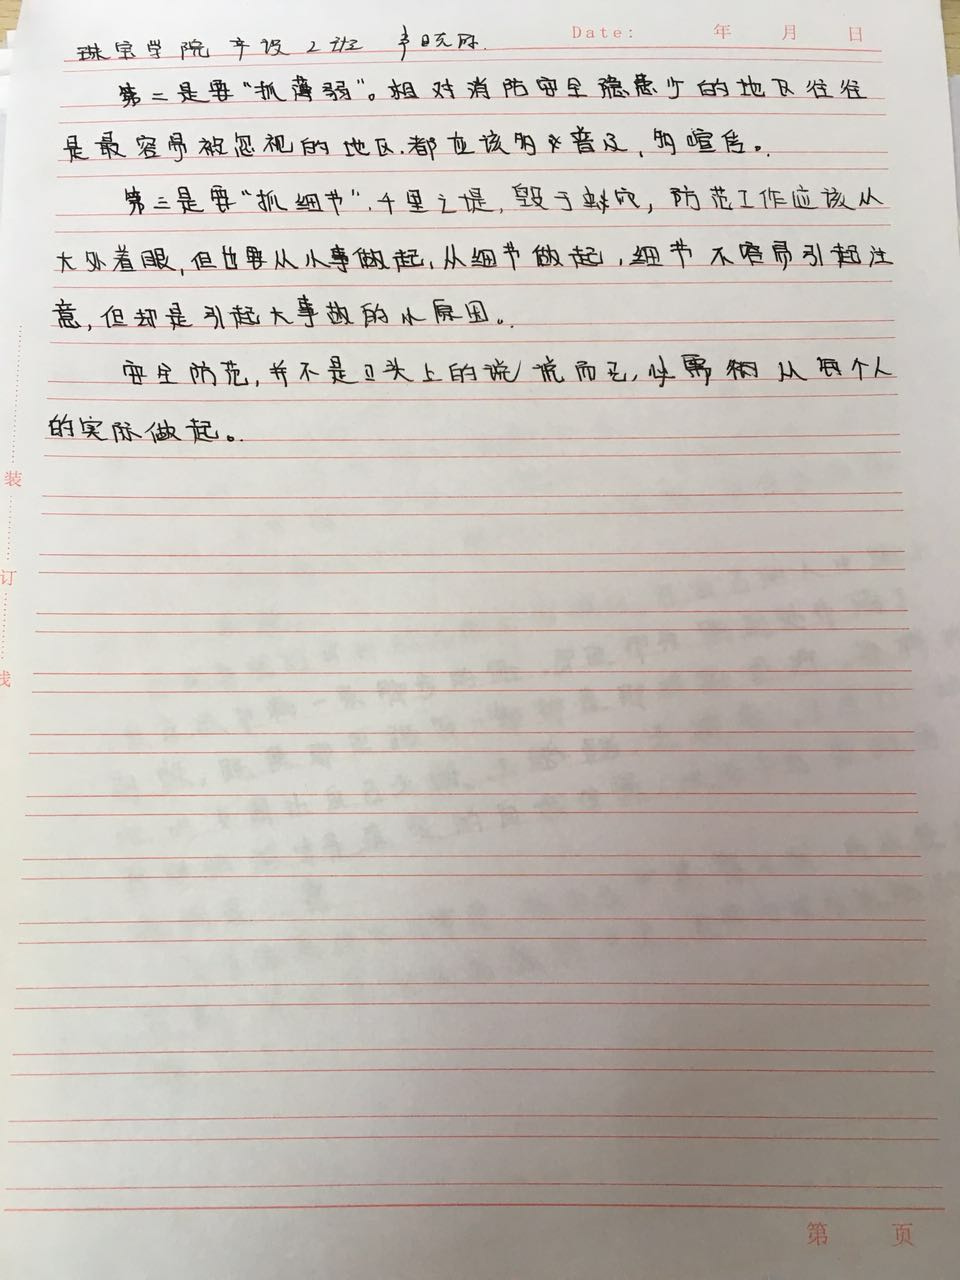 珠宝学院 产设2班
Date: 年 月 日
第二是要“抓薄弱”。相对消防安全隐患少的地区往往
是最容易被忽视的地区.都应该多普及,多喧传。
第三是要“抓细节”.千里之堤,毁于蚁穴,防范工作应该从
大处着眼,但也要从小事做起,从细节做起,细节不容易引起注
意,但却是引起大事故的小原因。
安全防范,并不是口头上的说说而已,需要从每个人
的实际做起。
装
订
线
第 页